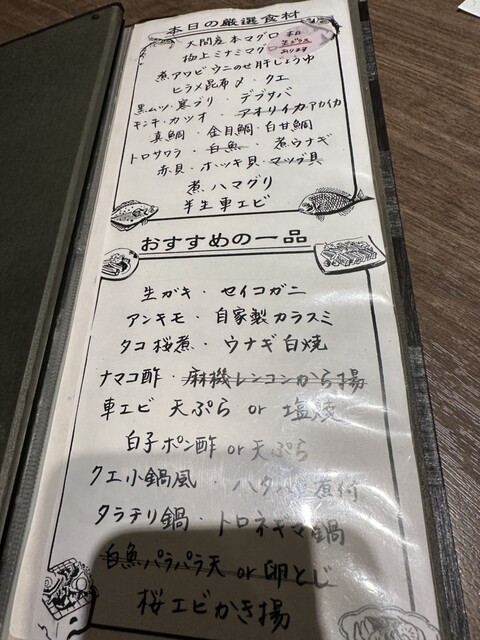 本日の厳選食材
大間産本マグロ
極上ミナミマグロ
あります
煮アワビ ウニのせ肝じょうゆ
ヒラメ昆布〆・クエ
黒ムツ・寒ブリ・デブサバ
キンキ・カツオ・アオリイカ アカイカ
真鯛・金目鯛・白甘鯛
トロサワラ・白魚・煮ウナギ
赤貝・ホッキ貝・マツブ貝
煮ハマグリ
半生車エビ
おすすめの一品
生ガキ・セイコガニ
アンキモ・自家製カラスミ
タコ桜煮・ウナギ白焼
ナマコ酢・麻機レンコンから揚
車エビ 天ぷら or 塩焼
白子ポン酢 or 天ぷら
クエ小鍋風・ハタハタ煮付
タラチリ鍋・トロネギマ鍋
白魚パラパラ天 or 卵とじ
桜エビかき揚